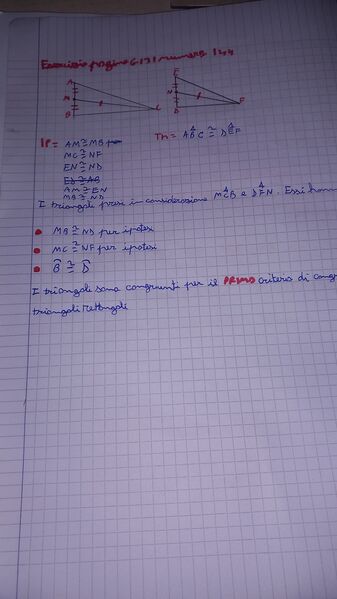 Esercizio pagina G131 numero 144
A
M
B
C
E
N
D
F
IP= AM≅MB
Th= ABC ≅ DEF
MC≅NF
EN≅ND
ED≅AB
AM≅EN
MB≅ND
I triangoli presi in considerazione MCB e DFN. Essi hann
MB≅ND per ipotesi
MC≅NF per ipotesi
B≅D
I triangoli sono congruenti per il PRIMO criterio di cong
triangoli rettangoli